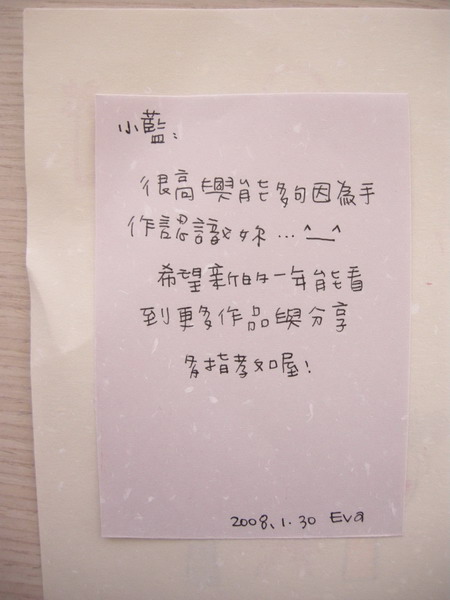 小藍:
很高興能夠因為手
作認識妳…^__^
希望新的一年能看
到更多作品與分享
多指教喔!
2008.1.30 Eva